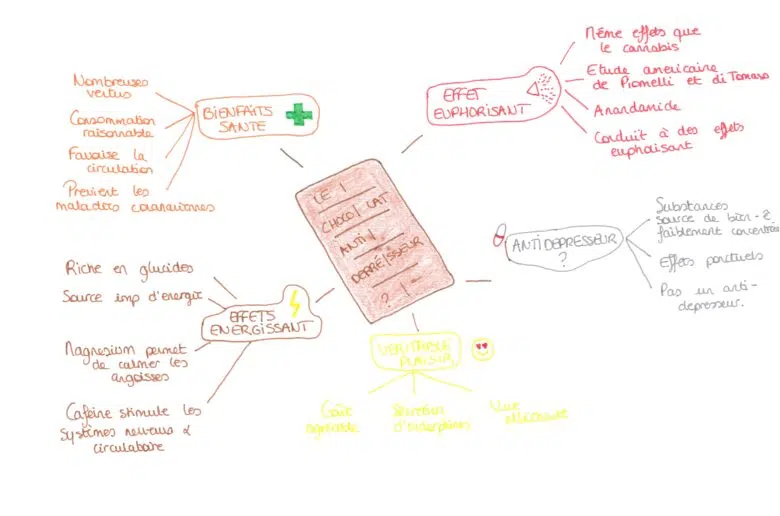 LE
CHOCOLAT
ANTI
DEPRESSEUR
?
BIENFAITS
SANTE
Nombreuses
vertus
Consommation
raisonnable
Favorise la
circulation
Previent les
maladies coronariennes
EFFET
EUPHORISANT
Même effets que
le cannabis
Etude américaine
de Piomelli et di Tomaso
Anandamide
Conduit à des effets
euphorisant
ANTIDEPRESSEUR
?
Substances
source de bien-ê
faiblement concentrées
Effets ponctuels
Pas un anti-
depresseur.
EFFETS
ENERGISSANT
Riche en glucides
Source imp d'energie
Magnesium permet
de calmer les
angoisses
Caféine stimule les
systèmes nerveux &
circulatoire
VERITABLE
PLAISIR
Goût
agréable
Sécrétion
d'endorphines
Vue
alléchante